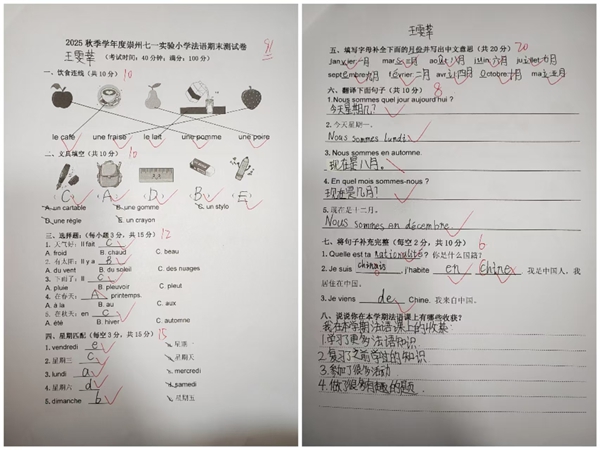 2025 秋季学年度崇州七一实验小学法语期末测试卷
王雯莘
（考试时间：40分钟；满分：100分）
91
一、饮食连线（共10分）
10
le café une fraise le lait une pomme une poire
二、文具填空（共10分）
10
C A D B E
A. un cartable B. une gomme C. un stylo
D. une règle E. un crayon
三、选择题:（每小题3分，共15分）
12
1. 天气好：Il fait C
A. froid B. chaud C. beau
2. 有太阳: Il y a B
A. du vent B. du soleil C. des nuages
3. 下雨了: Il C
A. pluie B. pleuvoir C. pleut
4. 在春天: A printemps.
A. à la B. au C. aux
5. 在秋天: en C
A. été B. hiver C. automne
四、星期匹配（每空3分，共15分）
15
1. vendredi e 星期一
2. 星期三 c 星期天
3. lundi a mercredi
4. 星期六 d samedi
5. dimanche b 星期五
王雯莘
五、填写字母补全下面的月份并写出中文意思（共20分）
20
janvier一月 mars三月 août八月 juin六月 juillet七月
septembre九月 février二月 avril四月 octobre十月 mai五月
六、翻译下面句子（共10分）
8
1.Nous sommes quel jour aujourd'hui ?
今天星期几？
2. 今天星期一。
Nous sommes lundi.
3. Nous sommes en automne.
现在是八月。
4. En quel mois sommes-nous ?
现在是几月？
5. 现在是十二月。
Nous sommes en décembre.
七、将句子补充完整（每空2分，共10分）
6
1. Quelle est ta nationalité ? 你是什么国籍？
2. Je suis chinois , j'habite en Chine . 我是中国人，我
居住在中国。
3. Je viens de Chine. 我来自中国。
八、说说你在本学期法语课上有哪些收获？
我在本学期法语课上的收获：
1.学习了更多法语知识
2.复习了之前学过的知识
3.参加了很多活动
4.做了很多有趣的题